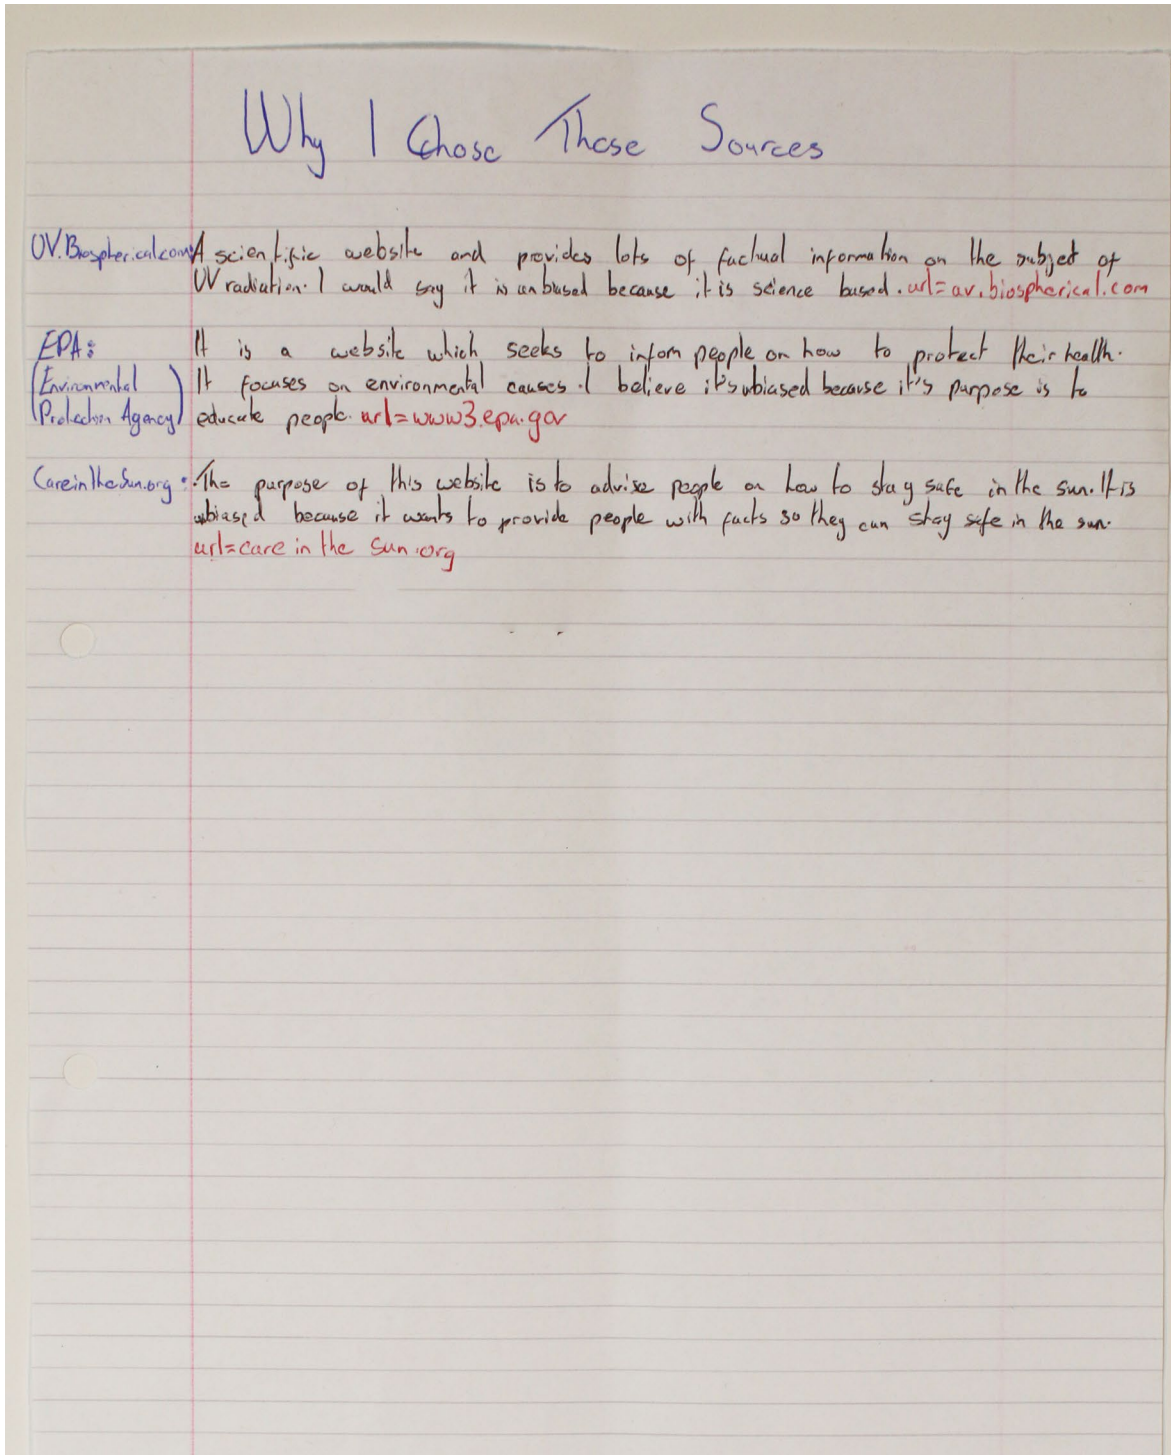 Why I Chose These Sources
UV.Biospherical.com: A scientific website and provides lots of factual information on the subject of
UV radiation. I would say it is unbiased because it is science based. url=uv.biospherical.com
EPA: It is a website which seeks to inform people on how to protect their health.
(Environmental It focuses on environmental causes. I believe it's ubiased because it's purpose is to
Protection Agency) educate people. url=www3.epa.gov
CareintheSun.org: The purpose of this website is to advise people on how to stay safe in the sun. It is
ubiased because it wants to provide people with facts so they can stay safe in the sun.
url=care in the sun.org